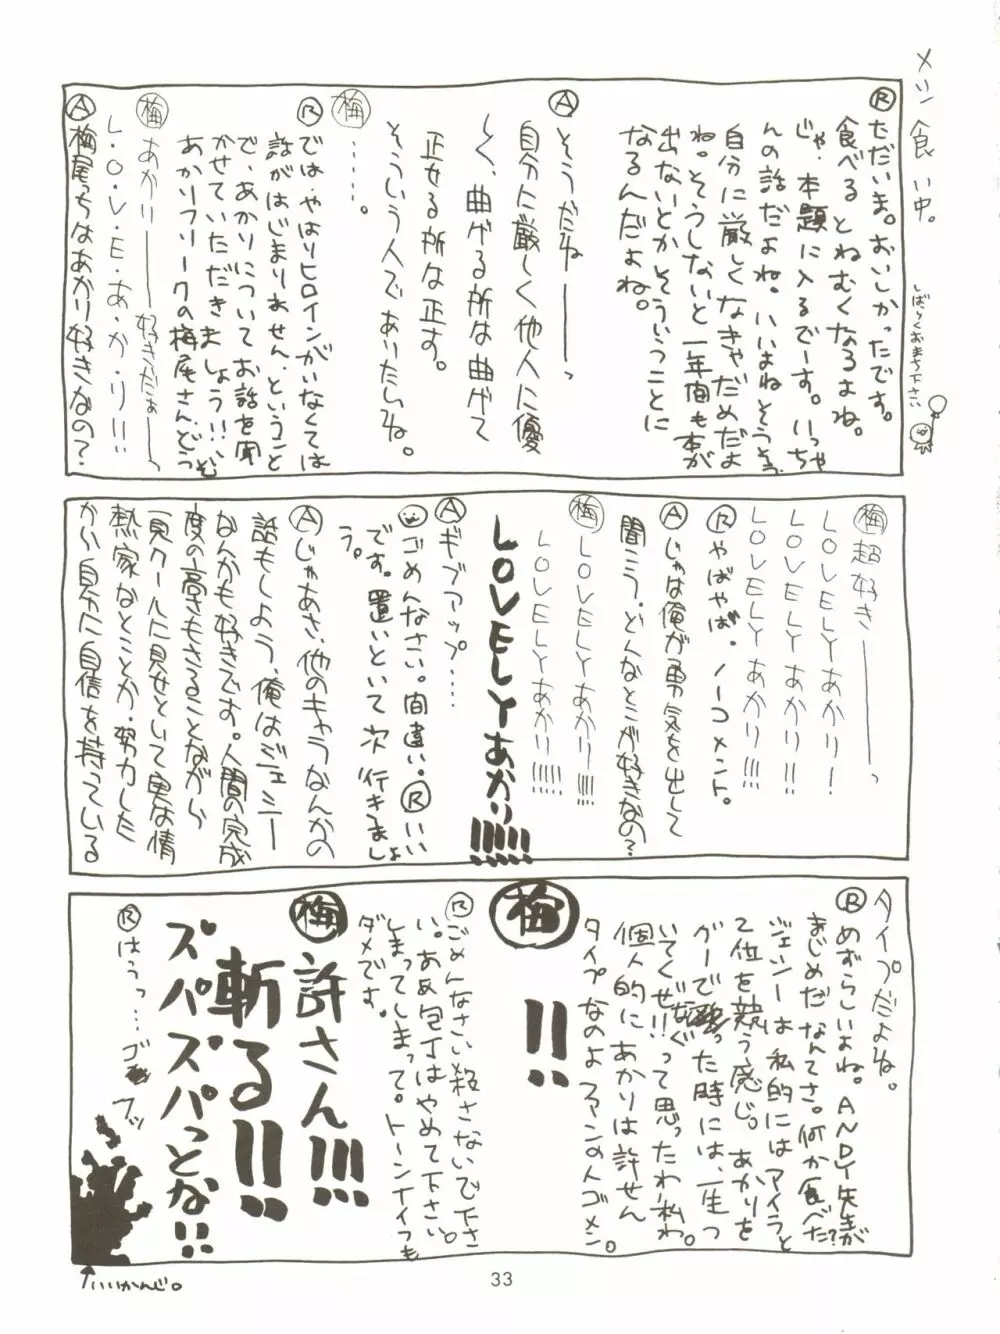 メシ食い中。
しばらくおまち下さい
Ⓡただいま。おいしかったです。
食べるとねむくなるよね。
じゃ、本題に入るでーす。いっちゃ
んの話だよね。いいよねそうそう
自分に厳しくなきゃだめだよ
ね。そうしないと一年間も本が
出ないとかそういうことに
なるんだよね。
Ⓐそうだねーーーっ
自分に厳しく他人に優
しく、曲げる所は曲げて
正せる所は正す。
そういう人でありたいね。
梅……。
Ⓡでは、やはりヒロインがいなくては
話がはじまりませんということ
で、あかりについてお話を聞
かせていただきましょう!!、ぞ
あかりフリークの梅尾さんどう
梅あかりーーー好きだぁーーっ
L・O・V・E・あ・か・り!!
Ⓐ梅尾っちはあかり好きなの?
梅超好きーーーーっ
LOVELYあかり!
LOVELYあかり!!
LOVELYあかり!!!
Ⓡやばやば。ノーコメント。
Ⓐじゃは俺が勇気を出して
聞こう、どんなとこが好きなの?
梅LOVELYあかり!!!!
LOVELYあかり!!!!!
LOVELYあかり!!!!!!
Ⓐギブアップ……
ごめんなさい。間違い。Ⓡいい
です。置いといて次行きましょ
う。
Ⓐじゃあさ、他のキャラなんかの
話もしよう、俺はジェシー
なんかも好きです。人間の完成
度の高さもさることながら
一見クールに見せといて実は情
熱家なとことか、努力した
から自分に自信を持っている
タイプだよね。
Ⓡめずらしいよね。ANDY先生が
まじめだなんてさ。何か食べた?
ジェシーは私的にはアイラと
2位を競う感じ。あかりを
グーでなぐった時には、一生つ
いてくぜ!!って思ったわ私わ。
個人的にあかりは許せん
タイプなのよファンの人ゴメン。
梅!!
Ⓡごめんなさい殺さないで下さ
い。あぁ包丁はやめて下さい。
しまってしまって。トーンナイフも
ダメです。
梅許さん!!!
斬る!!
ズバズバっとな!!
Ⓡはうっ…ゴフッ
↑いいかんじ。
33